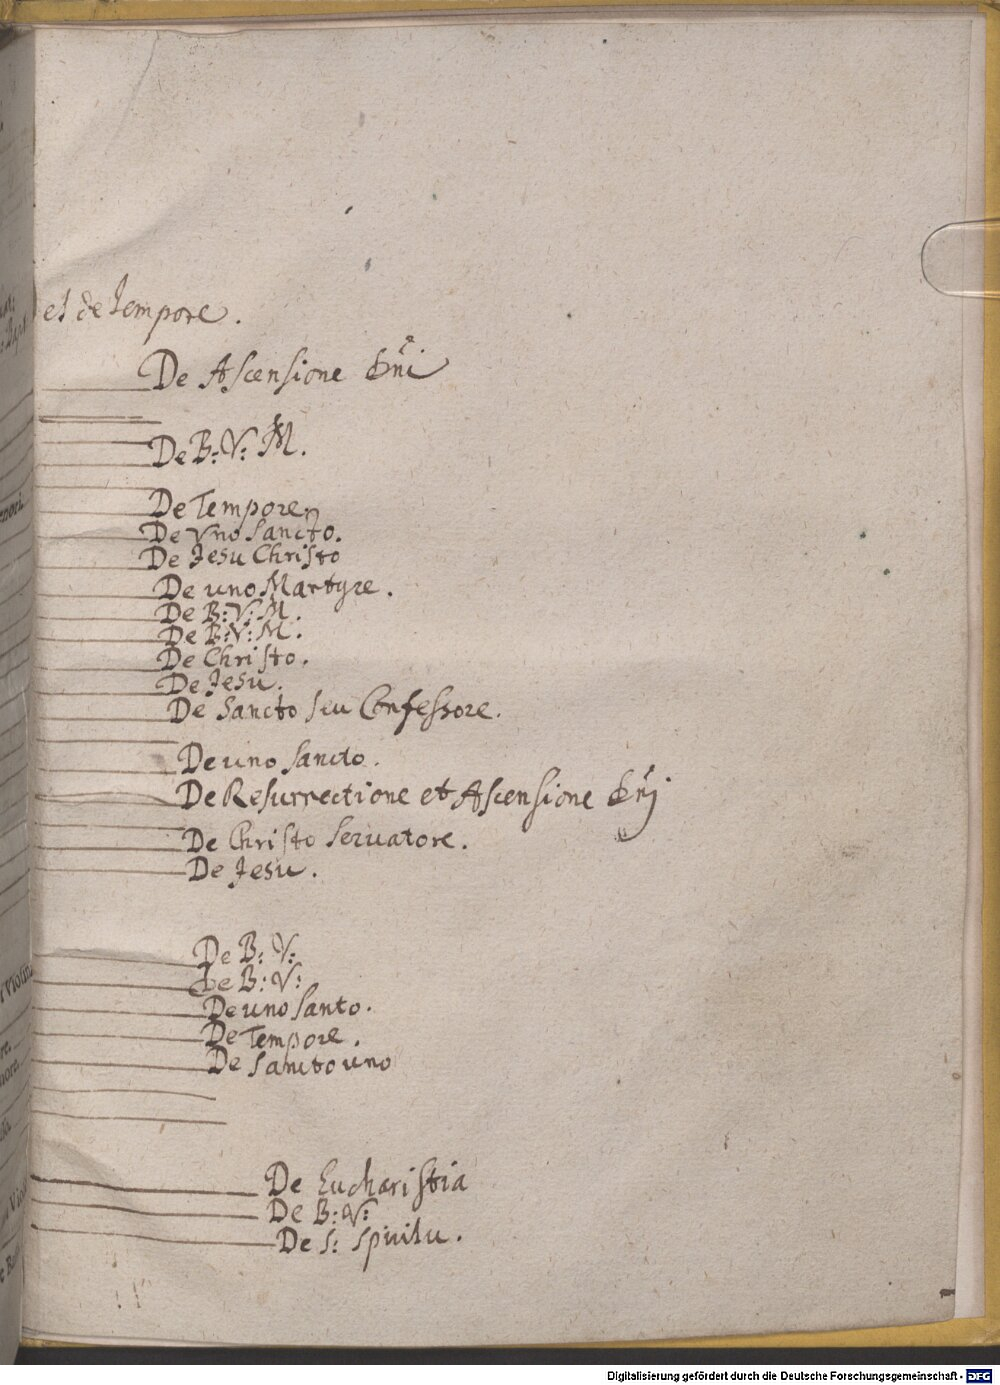 et de tempore.
De Ascensione Dn̄i
De B: V: M.
De Tempore
De Vno Sancto.
De Jesu Christo
De uno Martyre.
De B: V: M.
De B: V: M.
De Christo.
De Jesu.
De Sancto seu Confessore.
De uno Sancto.
De Resurrectione et Ascensione Dn̄j
De Christo Servatore.
De Jesu.
De B: V:
De B: V:
De uno Santo.
De Tempore.
De Sancto uno
De Eucharistia
De B: V:
De S: Spiritu.
Digitalisierung gefördert durch die Deutsche Forschungsgemeinschaft - DFG